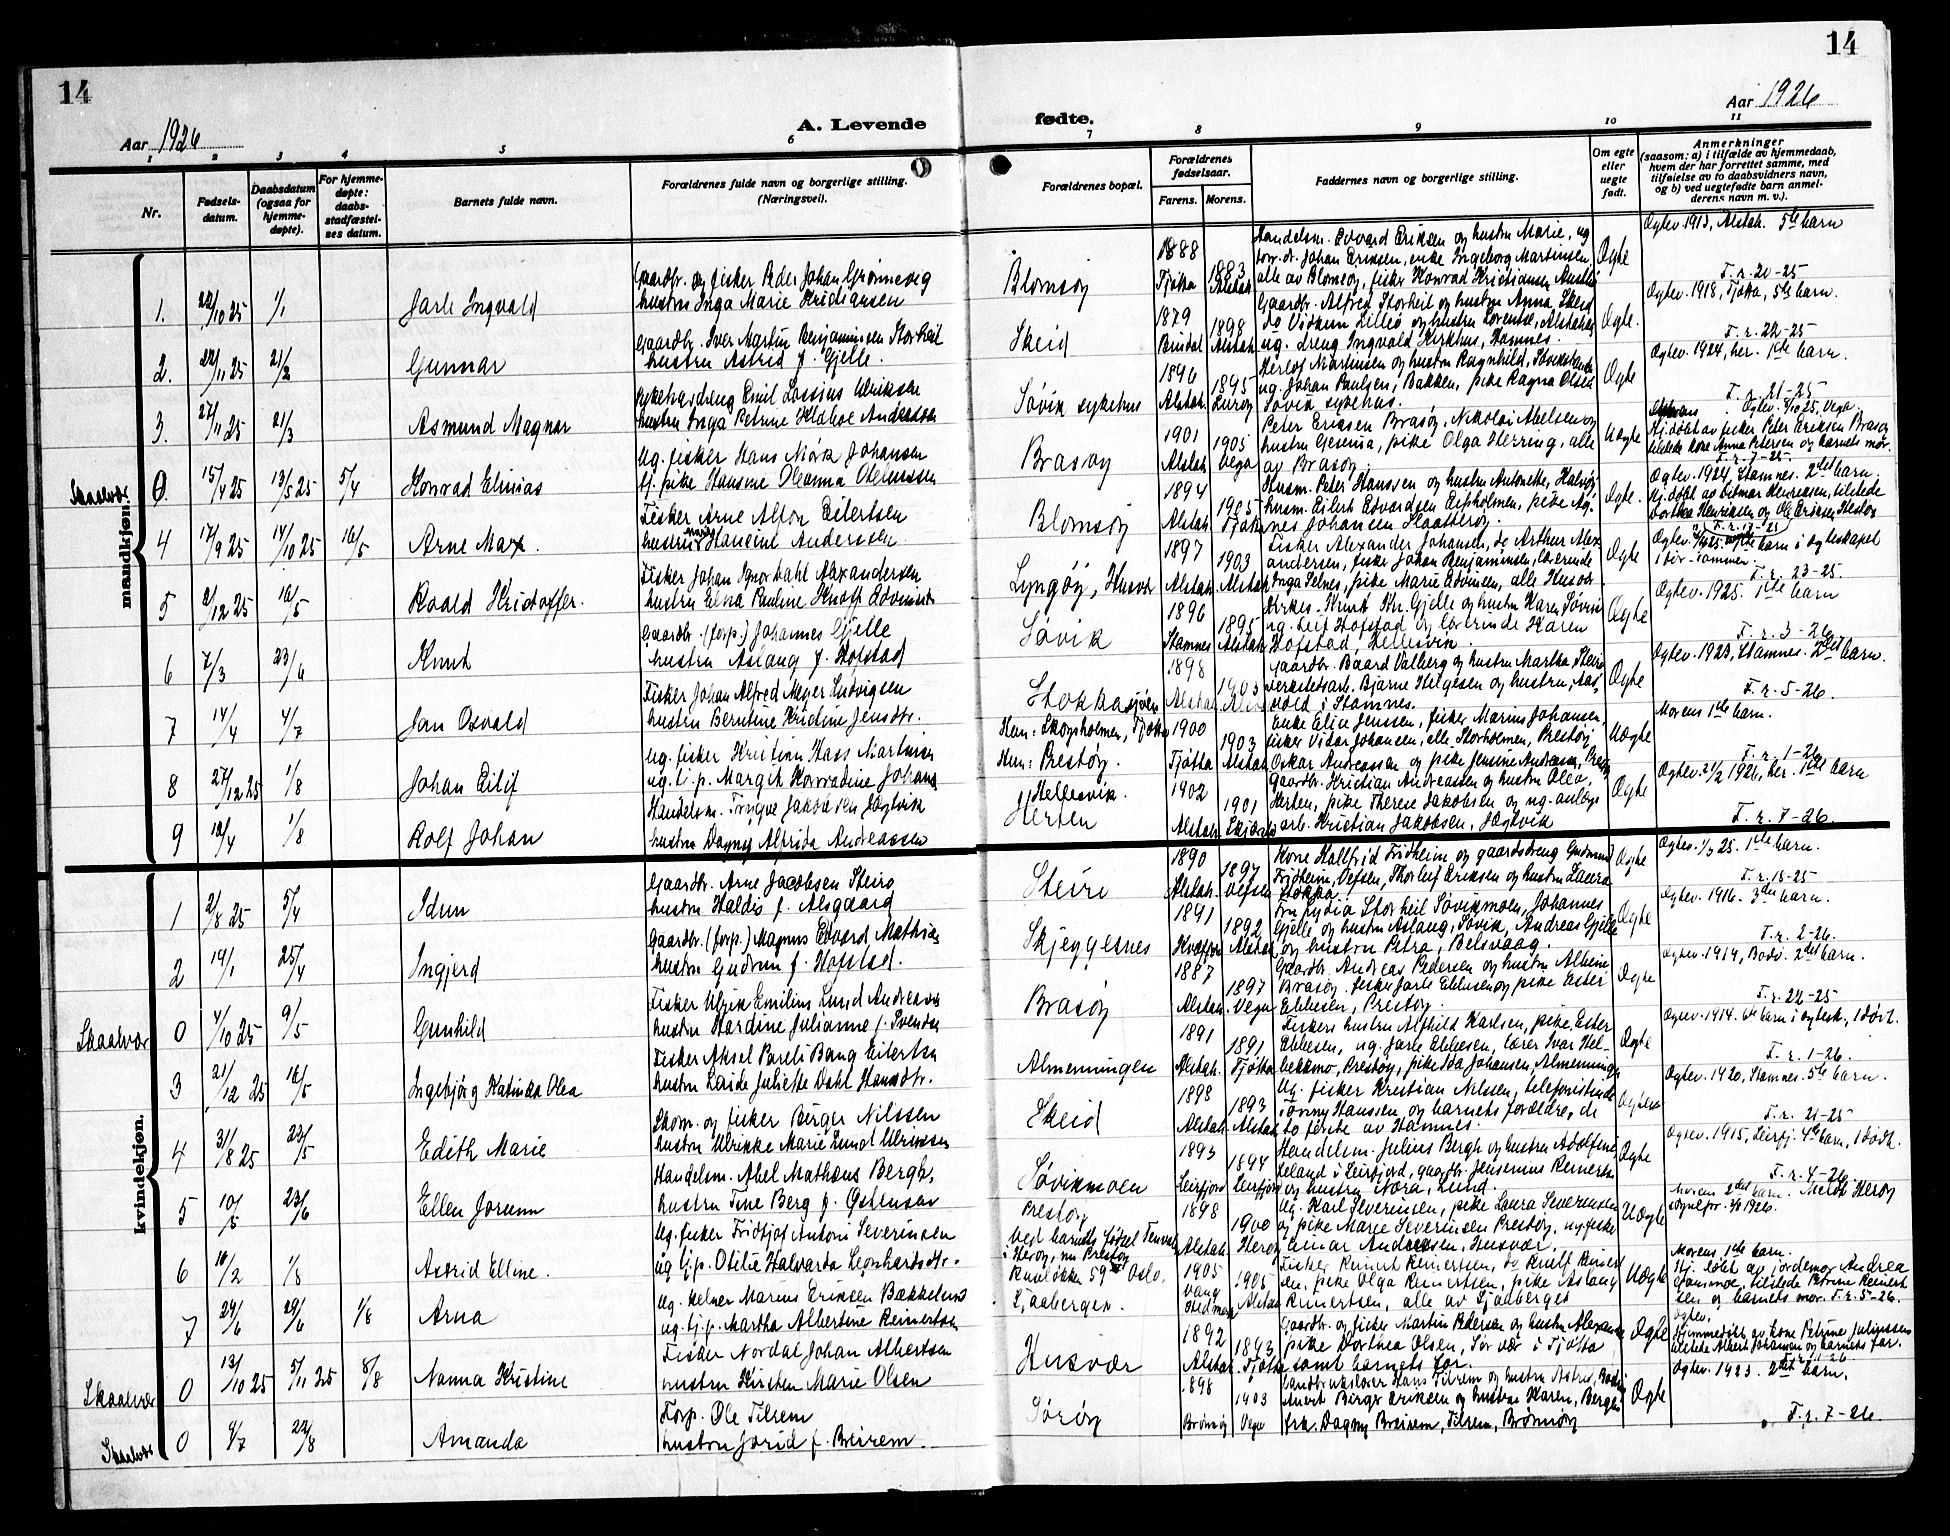 14
Aar 1926
A. Levende
1 2 3 4 5 6
Nr.
Fødsels-
datum.
Daabsdatum
(ogsaa for
hjemme-
døpte).
For hjemme-
døpte:
daabs-
stadfæstel-
ses datum.
Barnets fulde navn.
Forældrenes fulde navn og borgerlige stilling.
(Næringsvei).
mandkjøn.
Gaardbr. og fisker Peder Johan Grønnevig
1. 22/10 25 1/1 Jarle Ingvald hustru Inga Marie Kristiansen
Gaardbr. Iver Martin Benjaminsen Storheil
2. 22/11 25 21/2 Gunnar hustru Astrid f. Gjelle.
Emil Lossius Ulrikske
3. 27/11 25 21/3 Asmund Magnar hustru Inga Petrine Anderssen
Ug. fisker Hans Nörk Johansen
Skaalvær 0. 15/4 25 13/5 25 5/4 Konrad Elinias pike Hansine Oleanna
Fisker Arne Alfon Eilertsen
4 17/9 25 14/10 25 16/5 Arne Max. hustru Hansine Anderssen
Fisker Johan Alexandersen
5 2/12 25 16/5 Roald Kristoffer. hustru Elna Pauline
Gaardbr. (forp.) Johannes Gjelle
6 7/3 23/6 Knut hustru Aslaug f. Hofstad
Fisker Johan Alfred Meyer Ludvigsen
7 14/4 4/7 Jan Osvald hustru Berntine Kristine Jensdtr.
Ug. fisker Kristian Hass Martinsen
8 27/12 25 1/8 Johan Eilif ug. t. p. Margit Konradine Johans
Handelsm. Trygve Jakobsen Jægtvik
9 12/4 1/8 Rolf Johan hustru Dagny Alfrida Andreassen
kvindekjøn.
Gaardbr. Arne Jacobsen Steiro
1 2/8 25 5/4 Idun hustru Haldis f. Alsgaard
Gaardbr. (forp.) Magnus Edvard Mathias
2 19/1 25/4 Ingjerd hustru Gudrun f. Hofstad.
Fisker Ulrik Emilius Lund Andreassen
Skaalvær 0 4/10 25 9/5 Gunhild hustru Hardine Julianne f. Svendsen
Fisker Aksel Pareli Bang Eilertsen
3 21/12 25 16/5 Ingebjørg Katinka Olea hustru Laide Juliette Dahl Hansdtr.
Skom. og fisker Berger Nilssen
4 31/8 25 23/5 Edith Marie hustru Ulrikke Marie Lund Ulrikssen
Handelsm. Abel Mathæus Bergh,
5 10/5 23/6 Ellen Jorunn hustru Tine Berg f. Østensav
Ug. fisker Fridtjof Antoni Severinsen
6 10/2 1/8 Astrid Elline. ug t.p. Otilie Halvarda Leonhardsdtr.
Ug. kelner Marius Eriksen Bækkelund
7 24/6 29/6 1/8 Arna ug. t.p. Martha Albertine Reinertsen
Fisker Nordal Johan Albertsen
Skaalvær 0 13/10 25 5/11 25 8/8 Nanna Kristine hustru Kirsten Marie Olsen
Forp. Ole Tilrem
Skaalvær 0 9/7 22/8 Amanda hustru Jorid f. Breirem.
14
Aar 1926
fødte.
7 8 9 10 11
Forældrenes bopæl.
Forældrenes
fødselsaar.
Farens. Morens.
Faddernes navn og borgerlige stilling.
Om egte
eller
uegte
født.
Anmerkninger
(saasom: a) i tilfælde av hjemmedaab,
hvem der har forrettet samme, med
tilføielse av to daabsvidners navn,
og b) ved uegtefødte barn anmel-
derens navn m. v.).
Handelsm. Edvard Eriksen og hustru Marie, ug
Johan Eriksen, enke Ingeborg Martinsen,
Blomsøy 1888 Tjøtta 1883 Alstah. alle av Blomsøy, fisker Konrad Kristiansen Austbø Ægte Ægtev. 1913, Alstah. 5te barn
T. r. 20-25
Gaardbr. Alfred Storheil og hustru Anna Skeid
do Vidkun Lillø og hustru Lorentse, Alstahaug
Skeid 1879 Bindal 1898 Alstah. ug. dreng Ingvald Kirkhus, Hamnes. Ægte. Ægtev. 1918, Tjøtta, 5te barn.
T. r. 22-25
Herlof Martinsen og hustru Ragnhild,
ug. Johan Paulsen, Bakken, pike Ragna Olsen
Søvik sykehus 1896 Alstah. 1895 Lurøy Søvik sykehus. Ægte Ægtev. 1924, her. 1ste barn.
T. r. 21-25
Peter Eriksen Brasøy, Nikolai Abelsen og
hustru Gesina, pike Olga Herring, alle
Brasøy 1901 Alstah. 1905 Vega av Brasøy. Uægte
Hj. døbt av fisker Peter Eriksen Brasøy
tilstede kone Anna Petersen og barnets mor.
T. r. 7-25.
Husm. Peter Hanssen og hustru Antonette,
husm. Eilert Edvardsen Eipholmen, pike Ag-
Blomsøy 1894 Alstah. 1905 Tjøtta nes Johansen Flaatterøy. Ægte. Ægtev. 1924, Stamnes. 2det barn.
Hj. døbt av Ditmar Henriksen, tilstede
Dorthea Henriksen og Ole Eriksen
Fisker Alexander Johansen, do Arthur Alex
andersen, fisker Johan Benjaminsen, lærerinde
Lyngøy, Husvær 1897 Alstah. 1903 Alstah. Inga Selnes, pike Marie Edvinsen, alle Husvær Ægte
T. r. 23-25.
Kirkes. Knut Kr. Gjelle og hustru Karen Søvik
ug. Leif Hofstad og lærerinde Karen
Søvik 1896 Stamnes 1895 Alstah. Hofstad, Hellesvik. Ægte Ægtev. 1925. 1ste barn
T. r. 3-26
Gaardbr. Baard Valberg og hustru Martha, Steiro
verkstedsarb. Bjarne Helgesen og hustru, Aas-
Stokkasjøen 1898 Alstah. 1903 vold i Stamnes. Ægte Ægtev. 1923, Stamnes. 2det barn.
T. r. 5-26.
Enke Elise Jenssen, fisker Marius Johansen,
Han: Skogsholmen, Tjøtta 1900 fisker Vidar Johansen, alle Storholmen, Prestøy
Hun: Prestøy. Tjøtta 1903 Alstah. Oskar Andreassen og pike Jensine Andreassen, Prestøy Uægte Morens 1ste barn.
T. r. 1-26
Hellesvik. 1902 Gaardbr. Kristian Andreassen og hustru Olea,
Herten Alstah. 1901 Herten, pike Therese Jakobsen og ug. anlegs
arb. Kristian Jakobsen, Jægtvik Ægte Ægtev. 21/2 1926, her. 1ste barn
T. r. 7-26.
Kone Hallfrid Fridheim og gaardsdreng Gudmund
Fridheim, Vefsen, Thorleif Eriksen og hustru Laura
Steiro 1890 Alstah. 1897 Vefsen Stokka. Ægte Ægtev. 1/3 25. 1ste barn.
T. r. 15-25
Fru Lydia Storheil Søvikmoen, Johannes
Gjelle og hustru Aslaug, Søvik, Andreas Gjelle
Skjeggesnes 1891 1892 Alstah. og hustru Petra, Belsvaag. Ægte Ægtev. 1916. 3die barn.
T. r. 2-26.
Gaardbr. Andreas Pedersen og hustru Albine
Brasøy, fisker Jarle Ebbesen og pike Ester
Brasøy 1887 Alstah. 1897 Vega Ebbesen, Prestøy. Ægte Ægtev. 1919, Bodø. 2det barn.
T. r. 22-25
Fiskers hustru Alfhild Karlsen, pike Ester
Ebbesen, ug. Jarle Ebbesen, lærer Ivar Hel-
Almenningen 1891 Alstah. 1891 Tjøtta bekkmo, Prestøy, pike Ida Johansen, Almenningen Ægte Ægtev. 1914. 6te barn i ægtesk., 1 død.
T. r. 1-26.
Ug. fisker Kristian Nilssen, telefonistinde
Tonny Hanssen, og barnets forældre, de
Skeid 1898 Alstah. 1893 Alstah. to første av Hamnes. Ægte Ægtev. 1920, Stamnes. 5te barn.
T. r. 21-25
Handelsm. Julius Bergh og hustru Adolfine,
Leland i Leirfjord, gaardbr. Jensenius Reinertsen
Søvikmoen 1893 Leirfjord 1894 Leirfjord og hustru Nora, Lund. Ægte Ægtev. 1915, Leirfj. 4de barn, 1 dødt.
T. r. 4-26
Prestøy 1898 Ug. Karl Severinsen, pike Laura Severinsen
Ved barnets fødsel Tenvær Alstah. 1900 Herøy og pike Marie Severinsen Prestøy, ug fisker
i Herøy, nu Prestøy Einar Andreassen, Husvær. Uægte Morens 2det barn. Meldt Herøy
sognepr. 1926.
59 Oslo, 1905 Fisker Reinert Reinertsen, do Rolf Reinert
Vang Hedmark 1905 Alstah. sen, pike Olga Reinertsen, pike Aslaug
Tjaabergen. Reinertsen, alle av Tjaaberget Uægte Morens 1ste barn.
Hj. døbt av jordemor Andrea
tilstede Petrine Reinert
sen og barnets mor. T. r. 5-26.
Gaardbr. og fisker Martin Pedersen og hustru
pike Dorthea Olsen, Sørvær i Tjøtta
Husvær 1892 Alstah. 1893 Tjøtta samt barnets far. Ægte Ægtev.
Hjemmedøbt av kone Petrine Juliussen
tilstede Albert Johansen og barnets far.
Hans Tilrem og hustru Astrid,
Berger Eriksen og hustru Karen,
Sørøy 1898 Brønnøy 1903 Vega frk. Dagny Breirem, Tilrem, Brønnøy Ægte Ægtev. 1923. 2det barn.
T. r. 7-26.